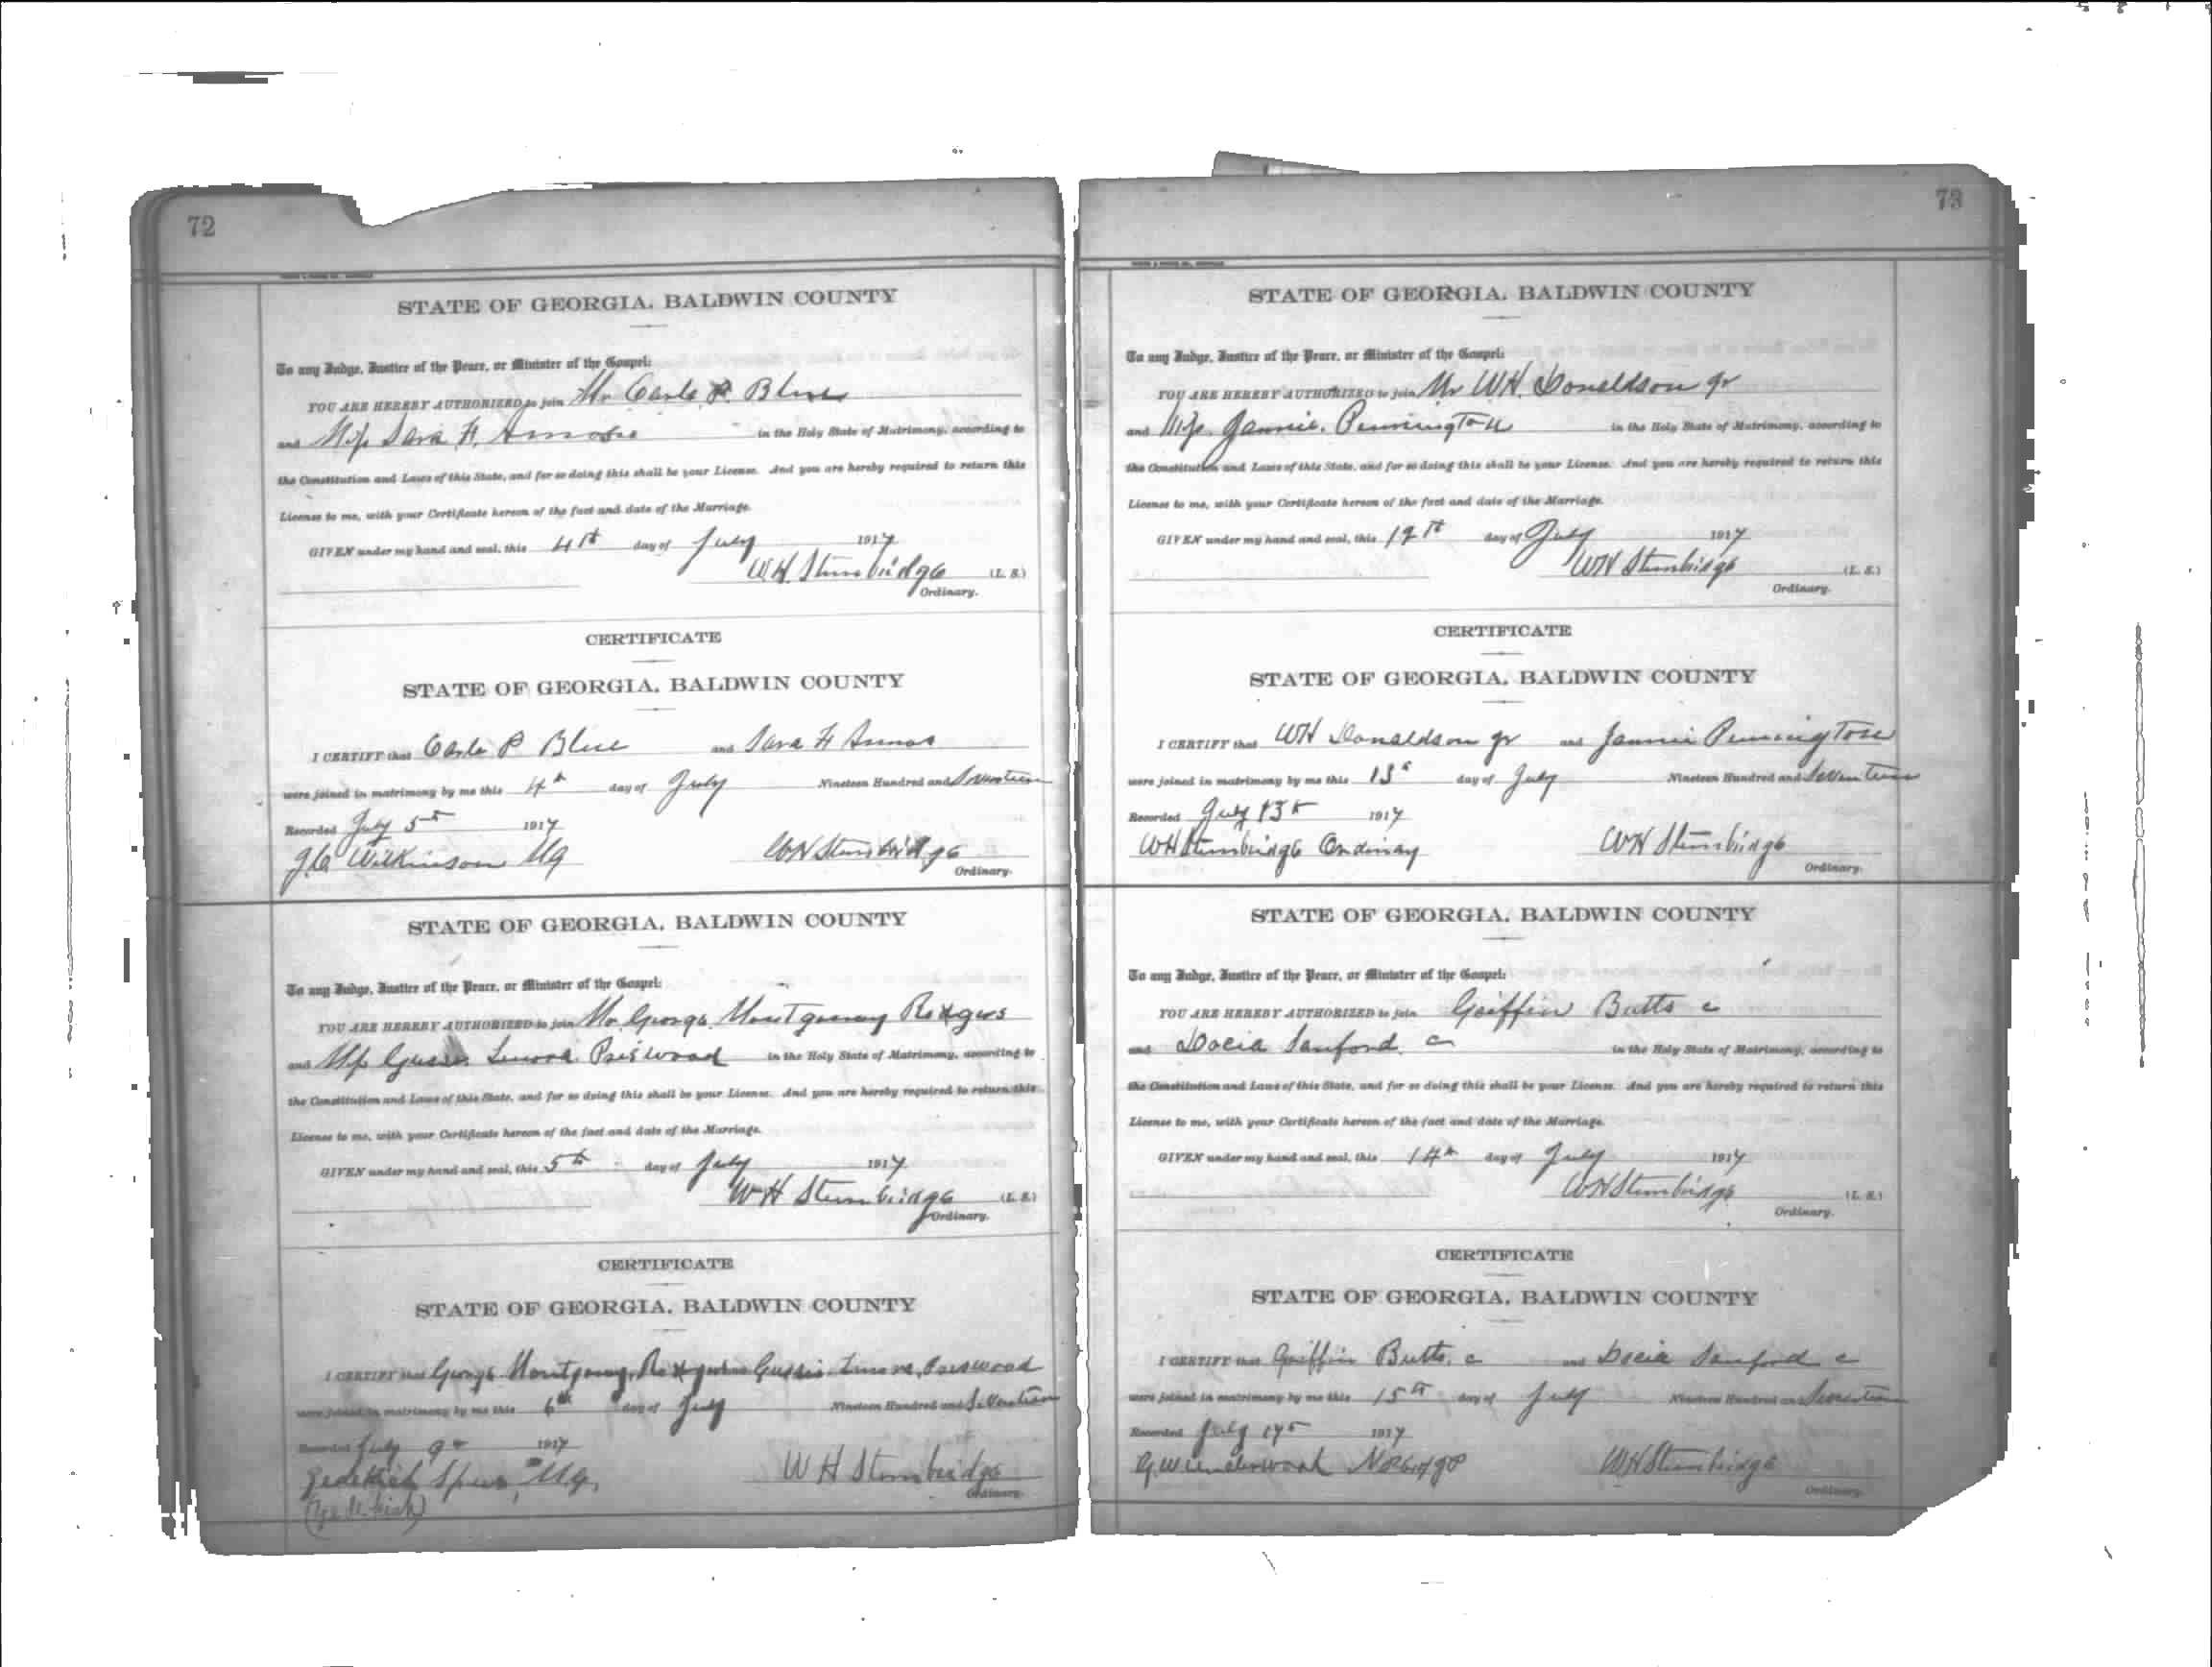 72
STATE OF GEORGIA, BALDWIN COUNTY
To any Judge, Justice of the Peace, or Minister of the Gospel:
YOU ARE HEREBY AUTHORIZED to join Mr Carlo P. Blue
and Miss Sara F. in the Holy State of Matrimony, according to
the Constitution and Laws of this State, and for so doing this shall be your License. And you are hereby required to return this
License to me, with your Certificate hereon of the fact and date of the Marriage.
GIVEN under my hand and seal, this 4th day of July 1917
W H Stembridge (L. S.)
Ordinary.
CERTIFICATE
STATE OF GEORGIA, BALDWIN COUNTY
I CERTIFY that Carlo P Blue and Sara F
were joined in matrimony by me this 4th day of July Nineteen Hundred and Seventeen
Recorded July 5th 1917
J.C. Wilkinson MG W H Stembridge
Ordinary.
STATE OF GEORGIA, BALDWIN COUNTY
To any Judge, Justice of the Peace, or Minister of the Gospel:
YOU ARE HEREBY AUTHORIZED to join Mr George Montgomery Rodgers
and Miss Gussie Lenora in the Holy State of Matrimony, according to
the Constitution and Laws of this State, and for so doing this shall be your License. And you are hereby required to return this
License to me, with your Certificate hereon of the fact and date of the Marriage.
GIVEN under my hand and seal, this 5th day of July 1917
W H Stembridge (L. S.)
Ordinary.
CERTIFICATE
STATE OF GEORGIA, BALDWIN COUNTY
I CERTIFY that George Montgomery Gussie Lenora
were joined in matrimony by me this 6th day of July Nineteen Hundred and Seventeen
Recorded July 9th 1917
M.G. W H Stembridge
Ordinary.
73
STATE OF GEORGIA, BALDWIN COUNTY
To any Judge, Justice of the Peace, or Minister of the Gospel:
YOU ARE HEREBY AUTHORIZED to join Mr W.H. Donaldson Jr
and Miss Jannie Pennington in the Holy State of Matrimony, according to
the Constitution and Laws of this State, and for so doing this shall be your License. And you are hereby required to return this
License to me, with your Certificate hereon of the fact and date of the Marriage.
GIVEN under my hand and seal, this day of July 1917
W H Stembridge (L. S.)
Ordinary.
CERTIFICATE
STATE OF GEORGIA, BALDWIN COUNTY
I CERTIFY that W H Donaldson Jr and Jannie Pennington
were joined in matrimony by me this 13th day of July Nineteen Hundred and Seventeen
Recorded July 13th 1917
W H Stembridge Ordinary W H Stembridge
Ordinary.
STATE OF GEORGIA, BALDWIN COUNTY
To any Judge, Justice of the Peace, or Minister of the Gospel:
YOU ARE HEREBY AUTHORIZED to join Griffin Butts c
and Docia Sanford c in the Holy State of Matrimony, according to
the Constitution and Laws of this State, and for so doing this shall be your License. And you are hereby required to return this
License to me, with your Certificate hereon of the fact and date of the Marriage.
GIVEN under my hand and seal, this 14th day of July 1917
W H Stembridge (L. S.)
Ordinary.
CERTIFICATE
STATE OF GEORGIA, BALDWIN COUNTY
I CERTIFY that Griffin Butts c and Docia Sanford c
were joined in matrimony by me this 15th day of July Nineteen Hundred and Seventeen
Recorded July 17th 1917
G.W. Underwood W H Stembridge
Ordinary.